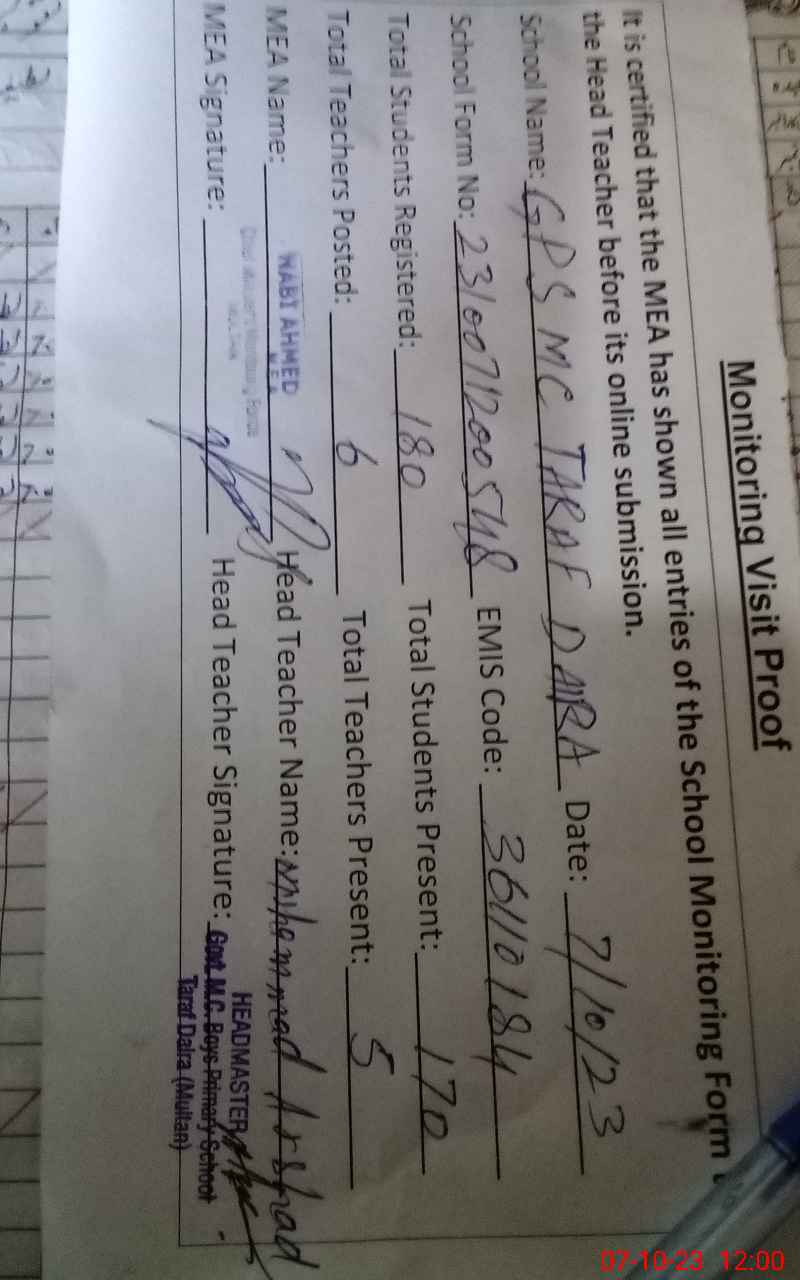 Monitoring Visit Proof
It is certified that the MEA has shown all entries of the School Monitoring Form
the Head Teacher before its online submission.
School Name: GPS MC TARAF DAIRA Date: 7/10/23
School Form No: 2310071200548 EMIS Code: 36110184
Total Students Registered: 180 Total Students Present: 170
Total Teachers Posted: 6 Total Teachers Present: 5
MEA Name: WABI AHMED Head Teacher Name: Muhammad Arshad
M E A
MEA Signature: Head Teacher Signature:
HEADMASTER
Govt M.C. Boys Primary School
Taraf Daira (Multan)
07-10-23 12:00